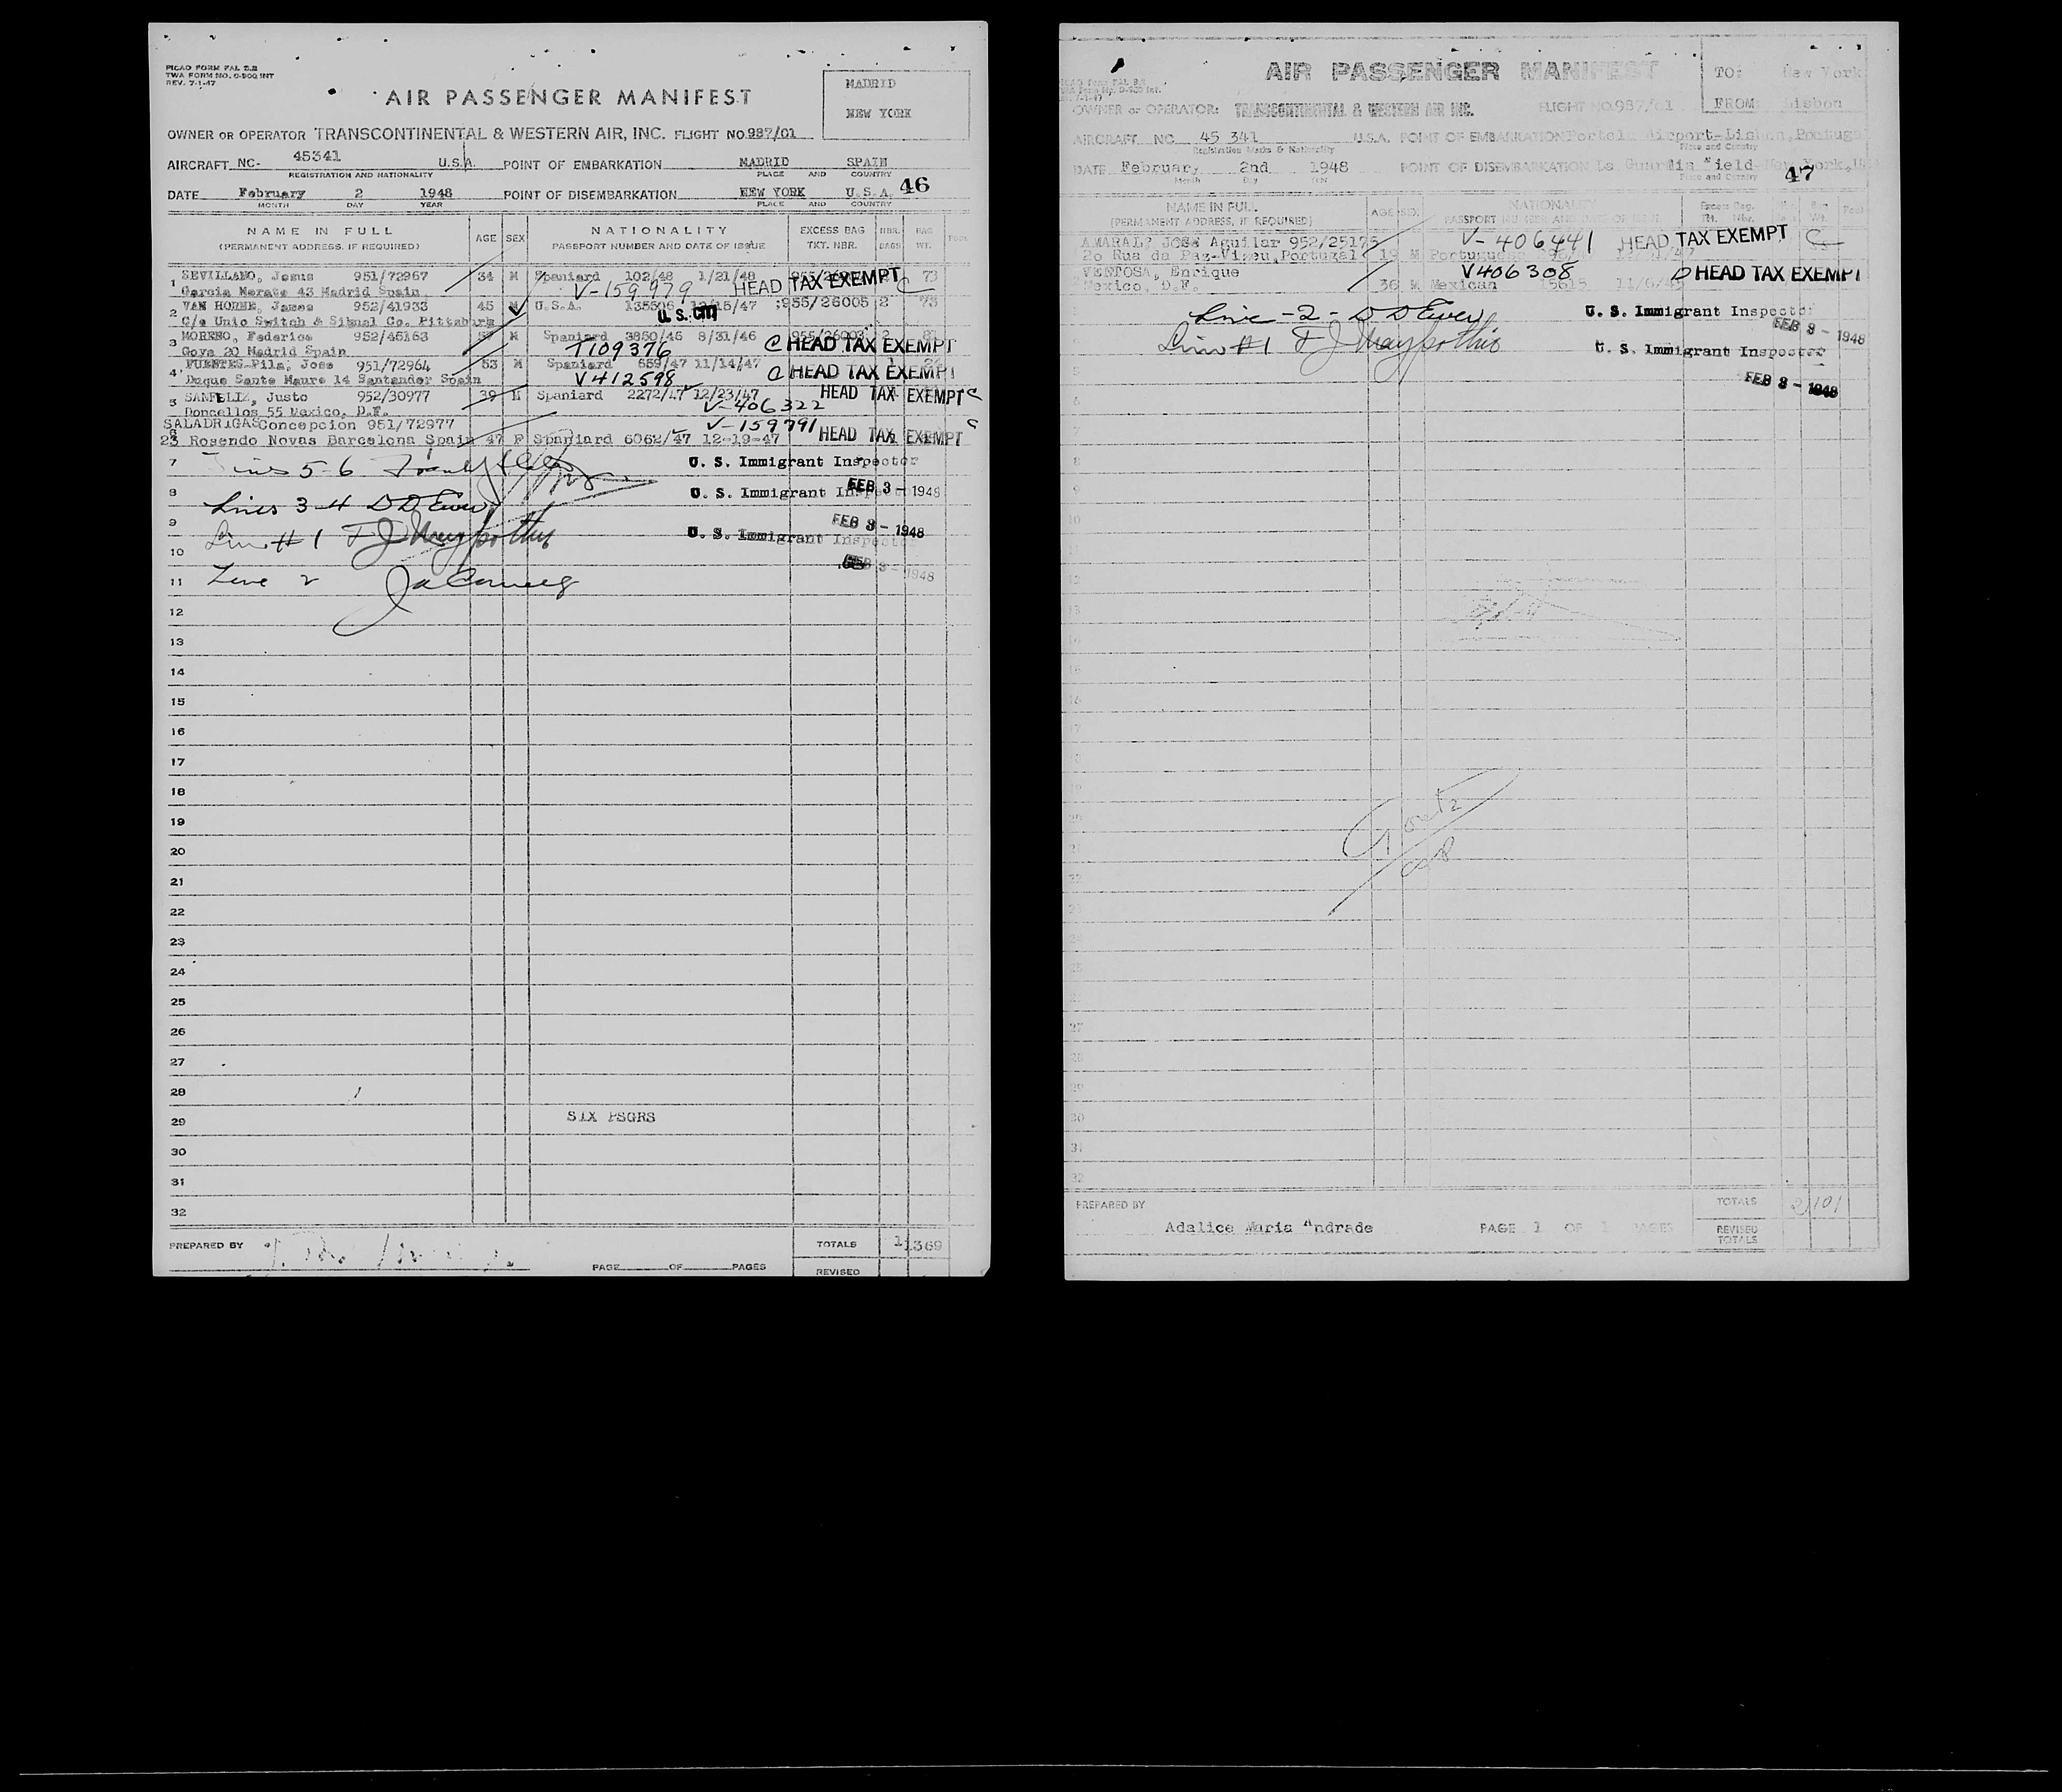 PICAO FORM FAL 2.2
TWA FORM NO. O-900 INT
REV. 7-1-47
AIR PASSENGER MANIFEST
MADRID
NEW YORK
OWNER OR OPERATOR TRANSCONTINENTAL & WESTERN AIR, INC. FLIGHT NO. 987/01
AIRCRAFT NC- 45341 U.S.A. POINT OF EMBARKATION MADRID SPAIN
REGISTRATION AND NATIONALITY PLACE AND COUNTRY
DATE February 2 1948 POINT OF DISEMBARKATION NEW YORK U.S.A. 46
MONTH DAY YEAR PLACE AND COUNTRY
NAME IN FULL AGE SEX NATIONALITY EXCESS BAG NBR. BAG
(PERMANENT ADDRESS, IF REQUIRED) PASSPORT NUMBER AND DATE OF ISSUE TKT. NBR. BAGS WT.
1 SEVILLANO, Jesus 951/72967 34 M Spaniard 102/48 1/21/48 73
Garcia Morato 43 Madrid Spain V-159979 HEAD TAX EXEMPT C
2 VAN HORNE, James 952/41933 45 M U.S.A. 135506 12/15/47 955/26005 2 73
C/o Unio Switch & Signal Co. Pittsburg U.S. CIT
3 MORENO, Federico 952/45163 M Spaniard 3850/46 8/31/46 955/26003 2
Goya 20 Madrid Spain T109376 C HEAD TAX EXEMPT
4 FUENTES-Pila, Jose 951/72964 53 M Spaniard 659/47 11/14/47
Duque Santo Mauro 14 Santander Spain V412598 C HEAD TAX EXEMPT
5 SANFELIZ, Justo 952/30977 39 M Spaniard 2272/47 12/23/47 HEAD TAX EXEMPT C
Doncellos 55 Mexico, D.F. V-406322
SALADRIGAS Concepcion 951/72977 V-159791
6 23 Rosendo Novas Barcelona Spain 47 F Spaniard 6062/47 12-19-47 HEAD TAX EXEMPT C
7 Lines 5-6 U. S. Immigrant Inspector
8 Lines 3-4 D D Ewen U. S. Immigrant Inspector FEB 3 - 1948
9 FEB 3 - 1948
10 Line #1 U. S. Immigrant Inspector
11 Line 2 FEB 3 - 1948
12
13
14
15
16
17
18
19
20
21
22
23
24
25
26
27
28
29 SIX PSGRS
30
31
32
PREPARED BY TOTALS 369
PAGE OF PAGES REVISED
AIR PASSENGER MANIFEST
TO: New York
FROM: Lisbon
OWNER or OPERATOR: TRANSCONTINENTAL & WESTERN AIR INC. FLIGHT NO. 987/01
AIRCRAFT NC 45 341 U.S.A. POINT OF EMBARKATION Portela Airport-Lisbon, Portugal
Registration Marks & Nationality Place and Country
DATE February 2nd 1948 POINT OF DISEMBARKATION La Guardia Field-New York,
Month Day Place and Country 47
NAME IN FULL AGE SEX NATIONALITY Excess Bag.
(PERMANENT ADDRESS, IF REQUIRED) PASSPORT NUMBER AND DATE OF ISSUE Tkt. Nbr.
AMARAL? JOSE Aguilar 952/25175 V-406441 HEAD TAX EXEMPT C
20 Rua da Paz-Viseu,Portugal 19 M Portuguese
VENTOSA, Enrique V406308 HEAD TAX EXEMPT
Mexico, D.F. 36 M Mexican 15615
Line -2- D D Ewen U. S. Immigrant Inspector
FEB 3 - 1948
Line #1 U. S. Immigrant Inspector
FEB 3 - 1948
PREPARED BY TOTALS 2 101
Adalice Maria Andrade PAGE 1 OF 1 PAGES REVISED
TOTALS